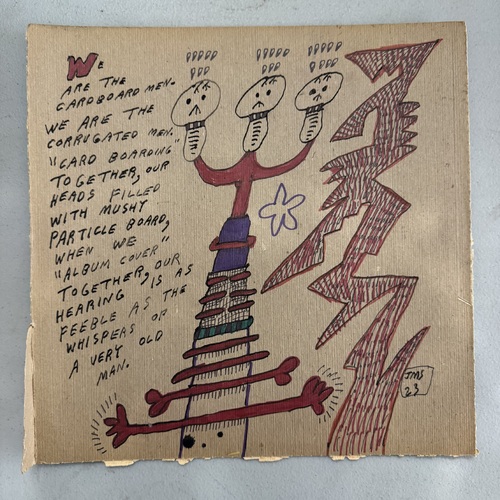 We
ARE THE
CARDBOARD MEN.
WE ARE THE
CORRUGATED MEN.
"CARD BOARDING"
TOGETHER, OUR
HEADS FILLED
WITH MUSHY
PARTICLE BOARD,
WHEN WE
"ALBUM COVER"
TOGETHER, OUR
HEARING IS AS
FEEBLE AS THE
WHISPERS OF
A VERY OLD
MAN.
JMS
23